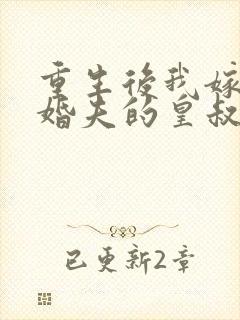 重生後我嫁
婚夫的皇叔
已更新2章